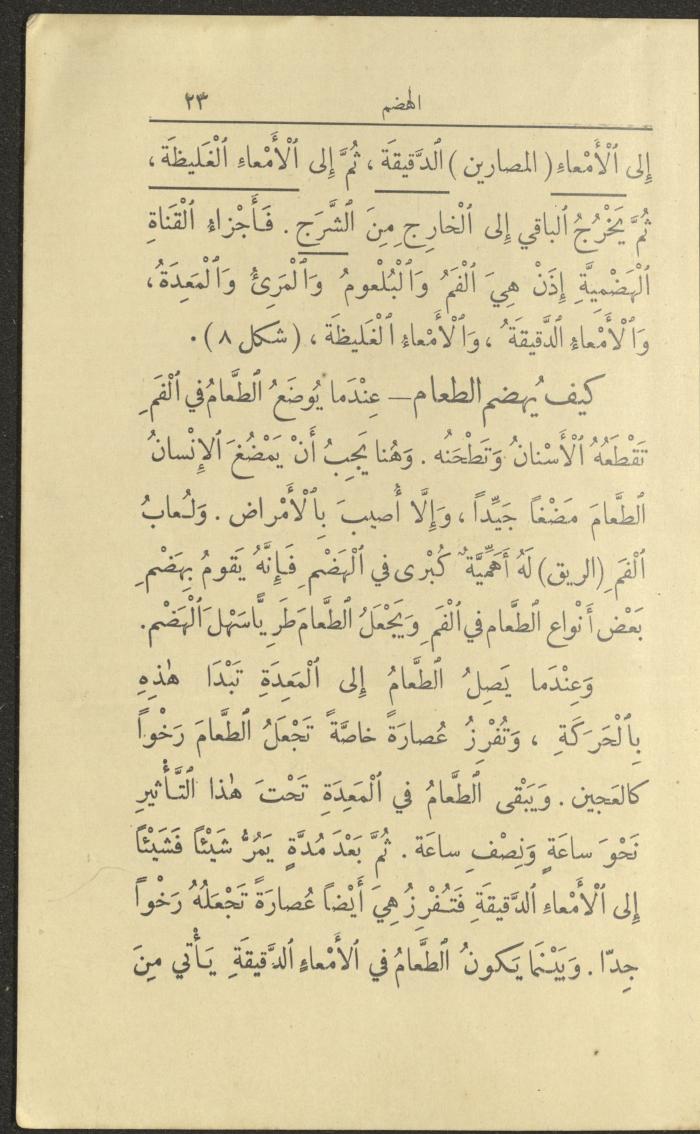 الهضم ٢٣
إِلى ٱلْأَمْعاءِ ( المصارين ) ٱلدَّقيقَة ، ثُمَّ إِلى ٱلْأَمْعاءِ ٱلْغَليظَة ،
ثُمَّ يَخْرُجُ ٱلباقي إِلى ٱلْخارِجِ مِنَ ٱلشَّرَجِ . فَأَجْزاءُ ٱلْقَناةِ
ٱلْهَضْمِيَّةِ إِذَنْ هِيَ ٱلْفَمُ وَٱلْبُلْعومُ وَٱلْمَرِئُ وَٱلْمَعِدَةُ ،
وَٱلْأَمْعاءُ ٱلدَّقيقَةُ ، وَٱلْأَمْعاءُ ٱلْغَليظَة ، ( شكل ٨ ) .
كيف يُهضم الطعام — عِنْدَما يُوضَعُ ٱلطَّعامُ في ٱلْفَمِ
تَقْطَعُهُ ٱلْأَسْنانُ وَتَطْحَنُه . وَهُنا يَجِبُ أَنْ يَمْضُغَ ٱلإِنْسانُ
ٱلطَّعامَ مَضْغاً جَيِّداً ، وَإِلَّا أُصيبَ بِٱلْأَمْراض . وَلُعابُ
ٱلْفَمِ ( الريق ) لَهُ أَهَمِّيَّةٌ كُبْرى في ٱلْهَضْمِ فَإِنَّهُ يَقومُ بِهَضْمِ
بَعْض أَنْواع ٱلطَّعام في ٱلْفَمِ وَيَجْعَلُ ٱلطَّعامَ طَرِيّاً سَهْلَ ٱلْهَضْم .
وَعِنْدَما يَصِلُ ٱلطَّعامُ إِلى ٱلْمَعِدَةِ تَبْدَا هٰذِهِ
بِٱلْحَرَكَةِ ، وَتُفْرِزُ عُصارَةً خاصَّةً تَجْعَلُ ٱلطَّعامَ رَخْواً
كالعَجين . وَيَبْقى ٱلطَّعامُ في ٱلْمَعِدَةِ تَحْتَ هٰذا ٱلتَّأْثيرِ
نَحْوَ ساعَةٍ وَنِصْفِ ساعَة . ثُمَّ بَعْدَ مُدَّةٍ يَمُرُّ شَيْئاً فَشَيْئاً
إِلى ٱلْأَمْعاءِ ٱلدَّقيقَةِ فَتُفْرِزُ هِيَ أَيْضاً عُصارَةً تَجْعَلُهُ رَخْواً
جِدّا . وَبَيْنَما يَكونُ ٱلطَّعامُ في ٱلأَمْعاءِ ٱلدَّقيقَةِ يَأْتي مِنَ